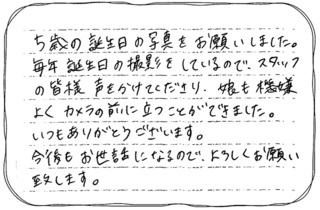 5歳の誕生日の写真をお願いしました。
毎年誕生日の撮影をしているので、スタッフ
の皆様声をかけてくださり、娘も機嫌
よくカメラの前に立つことができました。
いつもありがとうございます。
今後もお世話になるので、よろしくお願い
致します。